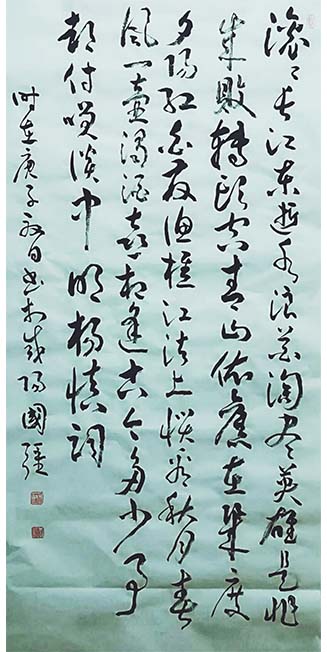 滚〻长江东逝水浪花淘尽英雄是非
成败转头空青山依旧在几度
夕阳红白发渔樵江渚上惯看秋月春
风一壶浊酒喜相逢古今多少事
都付笑谈中明杨慎词
时在庚子日书于咸阳國强